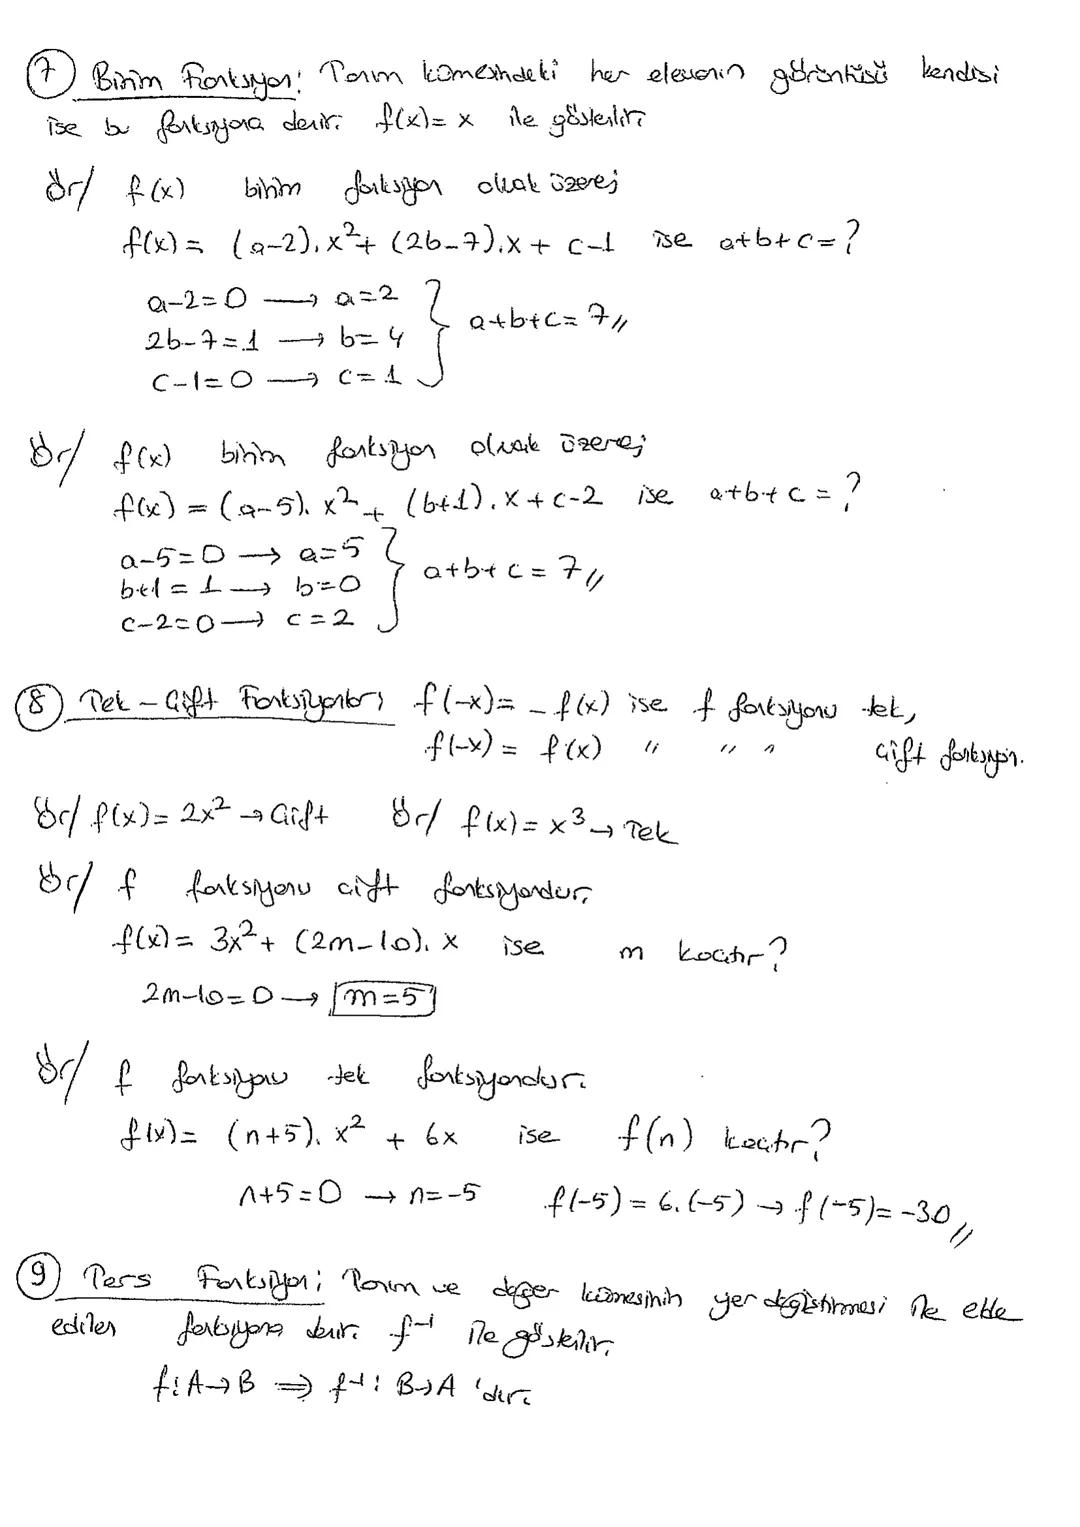 7 Birim Fonksiyon: Tanım kümesindeki her elemanın görüntüsü kendisi
ise bu fonksiyona denir. f(x)= x ile gösterilir.
Ör/ f(x) birim fonksiyon olmak üzere;
f(x)= (a-2).x²+ (2b-7).x + c-1 ise a+b+c=?
a-2=0 → a=2
2b-7=1 → b=4 } a+b+c=7//
c-1=0 → c=1
Ör/ f(x) birim fonksiyon olmak üzere;
f(x) = (a-5). x² + (b+1).x + c-2 ise a+b+c=?
a-5=0 → a=5
b+1=1 → b=0 } a+b+c=7//
c-2=0 → c=2
8 Tek - Çift Fonksiyonlar; f(-x)= -f(x) ise f fonksiyonu tek,
f(-x) = f(x) " " " çift fonksiyon.
Ör/ f(x)= 2x² → Çift Ör/ f(x)= x³ → Tek
Ör/ f fonksiyonu çift fonksiyondur.
f(x)= 3x²+ (2m-10). x ise m kaçtır?
2m-10=0 → m=5
Ör/ f fonksiyonu tek fonksiyondur.
f(x)= (n+5). x² + 6x ise f(n) kaçtır?
n+5=0 → n=-5 f(-5) = 6.(-5) → f(-5)= -30//
9 Ters Fonksiyon; Tanım ve değer kümesinin yer değiştirmesi ile elde
edilen fonksiyona denir. f⁻¹ ile gösterilir.
f:A→B ⇒ f⁻¹: B→A 'dır.